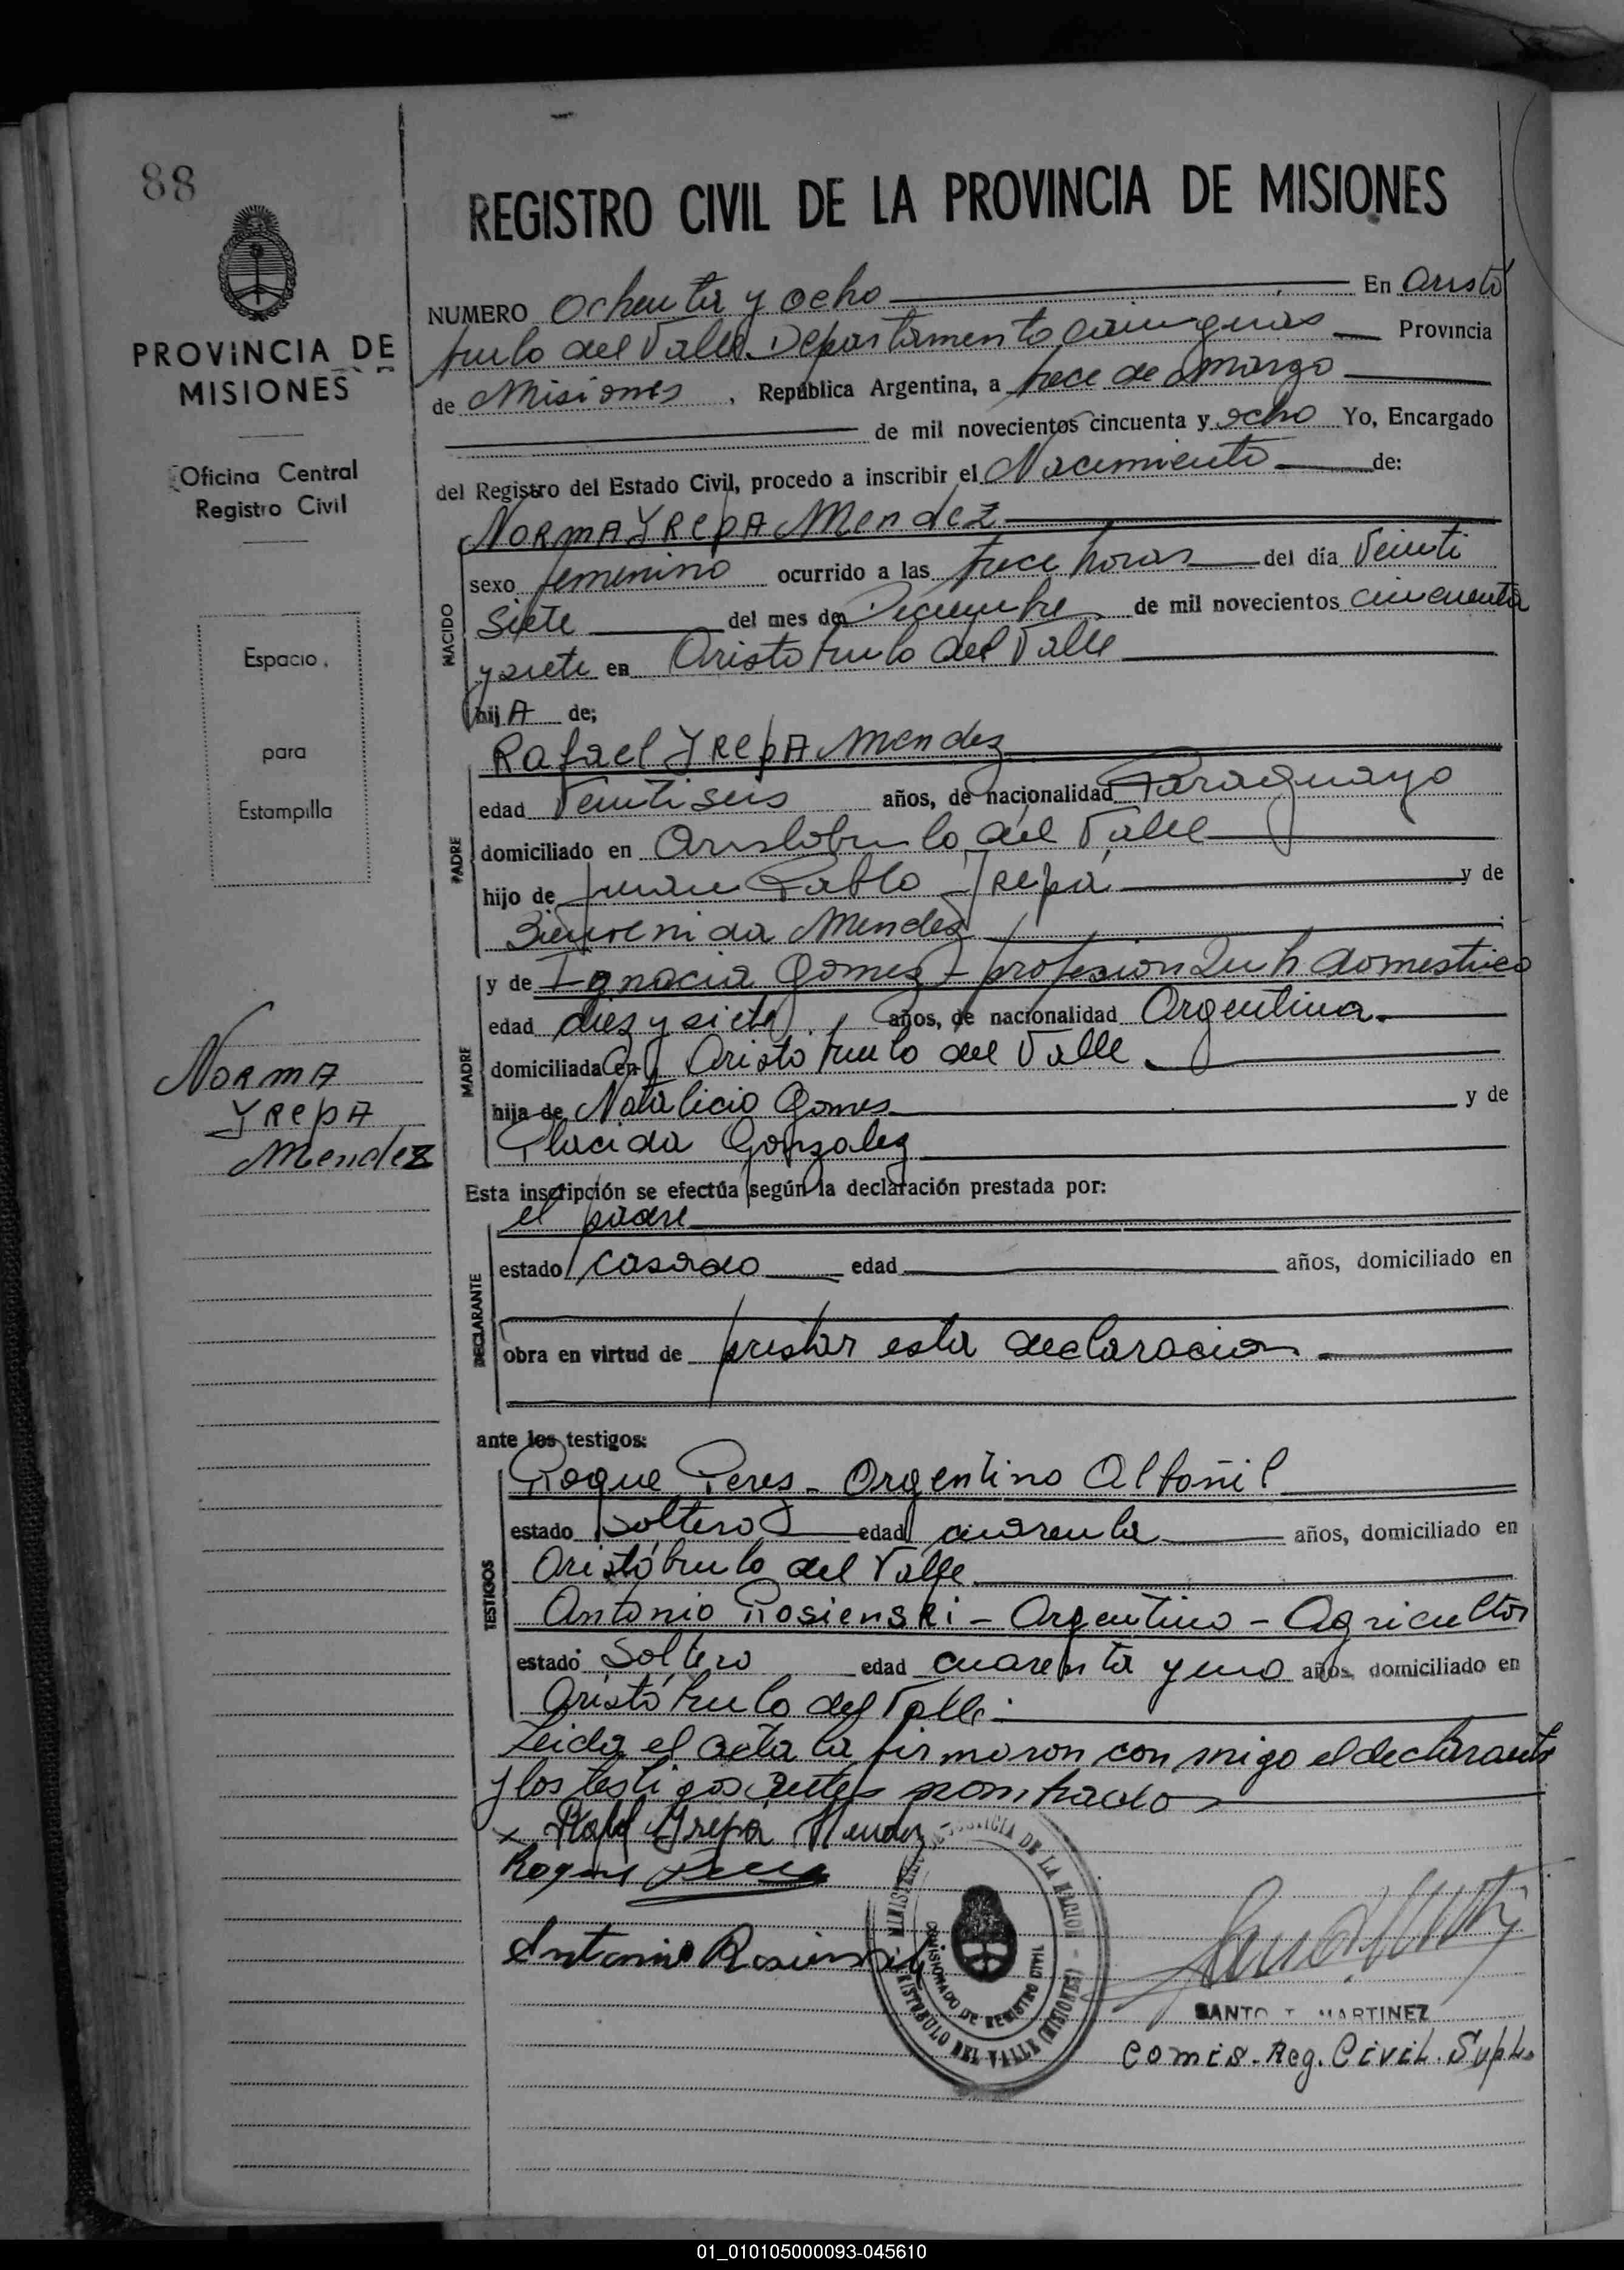 88
PROVINCIA DE
MISIONES
Oficina Central
Registro Civil
Espacio
para
Estampilla
Norma
Yrepa
Mendez
REGISTRO CIVIL DE LA PROVINCIA DE MISIONES
NUMERO Ochenta y ocho En Aristó
bulo del Valle Departamento Cainguas Provincia
de Misiones, República Argentina, a trece de Marzo
de mil novecientos cincuenta y ocho Yo, Encargado
del Registro del Estado Civil, procedo a inscribir el Nacimiento de:
NACIDO
Norma Yrepa Mendez
sexo femenino ocurrido a las trece horas del día Veinti
siete del mes de Diciembre de mil novecientos cincuenta
y siete en Aristobulo del Valle
hij A de;
PADRE
Rafael Yrepa Mendez
edad Veintiseis años, de nacionalidad Paraguayo
domiciliado en Aristobulo del Valle
hijo de Juan Pablo Yrepa y de
Bienvenida Mendez
MADRE
y de Ignacia Gomez - profesion Queh domestico
edad diez y siete años, de nacionalidad Argentina
domiciliada en Aristobulo del Valle
hija de Natalicio Gomes y de
Placida Gonzalez
Esta inscripción se efectúa según la declaración prestada por:
DECLARANTE
el padre
estado casado edad años, domiciliado en
obra en virtud de prestar esta declaracion
ante los testigos:
TESTIGOS
Roque Peres - Argentino Albañil
estado soltero edad cuarenta años, domiciliado en
Aristóbulo del Valle
Antonio Rosienski - Argentino - Agricultor
estado Soltero edad cuarenta y uno años, domiciliado en
Aristóbulo del Valle
Leida el acta la firmaron con migo el declarante
y los testigos antes nombrado
x Rafael Yrepa Mendez
Antonio Rosienski
MINISTERIO DE JUSTICIA DE LA NACION
COMISIONADO DE REGISTRO CIVIL
ARISTOBULO DEL VALLE (MISIONES)
SANTO T. MARTINEZ
Comis. Reg. Civil. Supl.
01_010105000093-045610